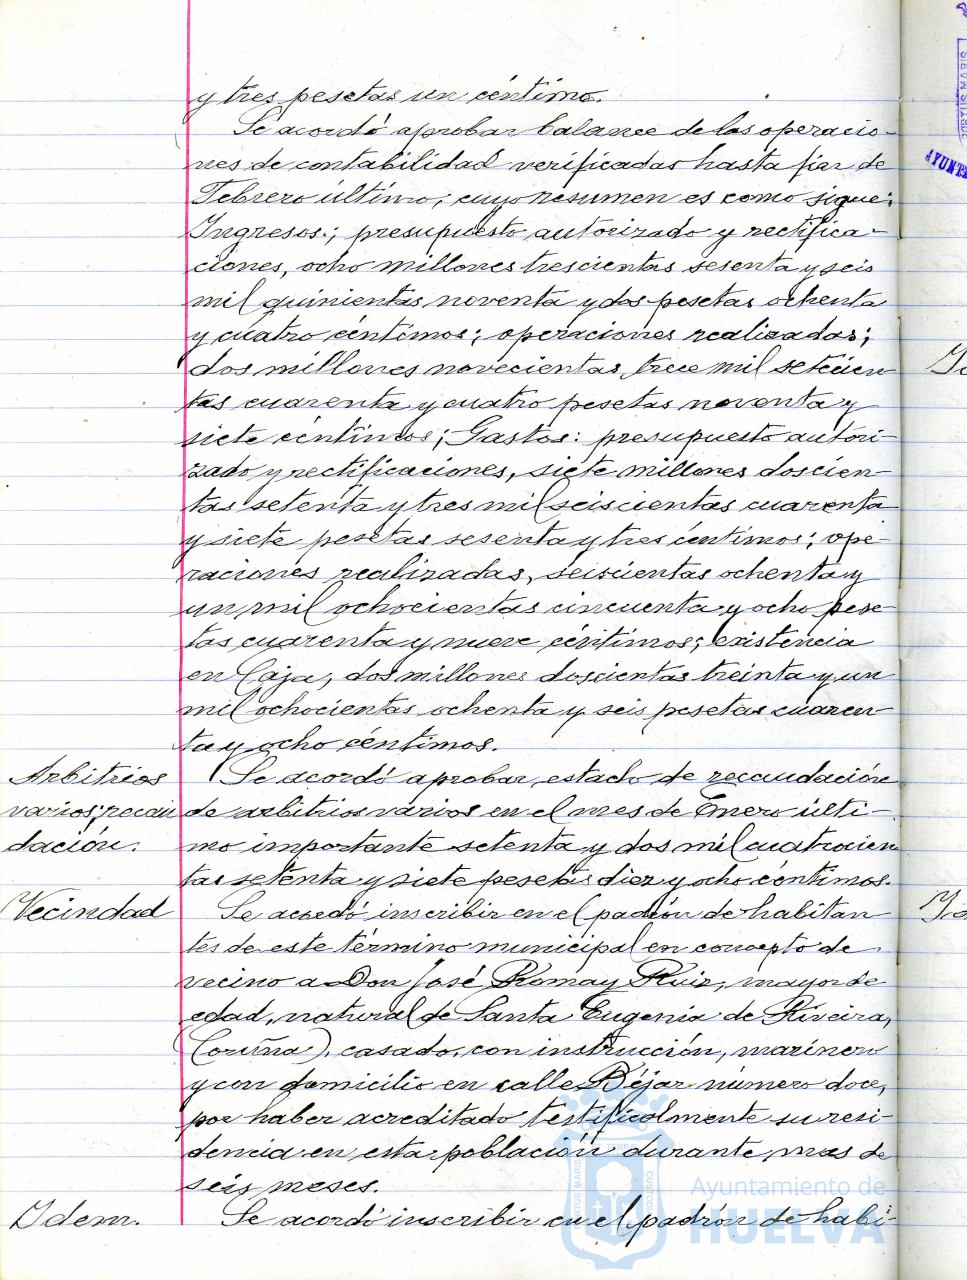 y tres pesetas un céntimo.
Se acordó aprobar balance de las operacio-
nes de contabilidad verificadas hasta fin de
Febrero último, cuyo resumen es como sigue:
Ingresos: presupuesto autorizado y rectifica-
ciones, ocho millones trescientas sesenta y seis
mil quinientas noventa y dos pesetas ochenta
y cuatro céntimos; operaciones realizadas;
dos millones novecientas trece mil setecien
tas cuarenta y cuatro pesetas noventa y
siete céntimos; Gastos: presupuesto autori-
zado y rectificaciones, siete millones doscien-
tas setenta y tres mil seiscientas cuarenta
y siete pesetas sesenta y tres céntimos; ope-
raciones realizadas, seiscientas ochenta y
un mil ochocientas cincuenta y ocho pese-
tas cuarenta y nueve céntimos; existencia
en Caja, dos millones doscientas treinta y un
mil ochocientas ochenta y seis pesetas cuaren-
ta y ocho céntimos.
Arbitrios
varios; recau
dación.
Se acordó aprobar estado de recaudación
de arbitrios varios en el mes de Enero últi-
mo importante setenta y dos mil cuatrocien
tas setenta y siete pesetas diez y ocho céntimos.
Vecindad
Se acordó inscribir en el padrón de habitan
tes de este término municipal en concepto de
vecino a Don José Romay Ruiz, mayor de
edad, natural de Santa Eugenia de Riveira,
(Coruña), casado, con instrucción, marinero
y con domicilio en calle Béjar número doce,
por haber acreditado testificalmente su resi-
dencia en esta población durante mas de
seis meses.
Idem.
Se acordó inscribir en el padrón de habi-
Ayuntamiento de
HUELVA
PORTUS MARIS